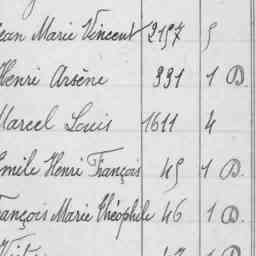 Jean Marie Vincent 2197 5
Henri Arsène 331 1 D.
Marcel Louis 1611 4
Emile Henri François 45 1 D.
François Marie Théophile 46 1 D.